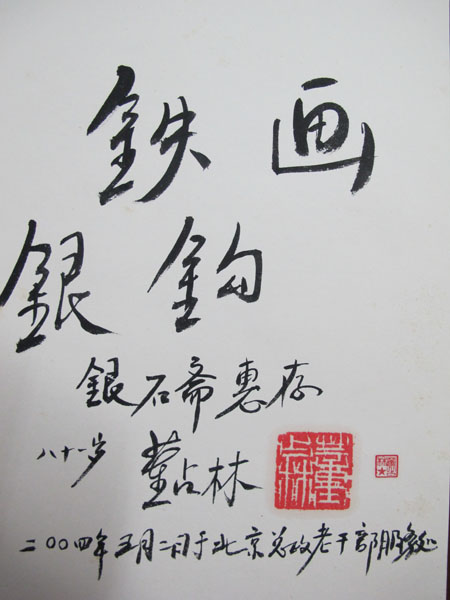 鉄画
銀鈎
銀石斋惠存
八十一岁 董占林
二〇〇四年五月二日于北京总政老干部